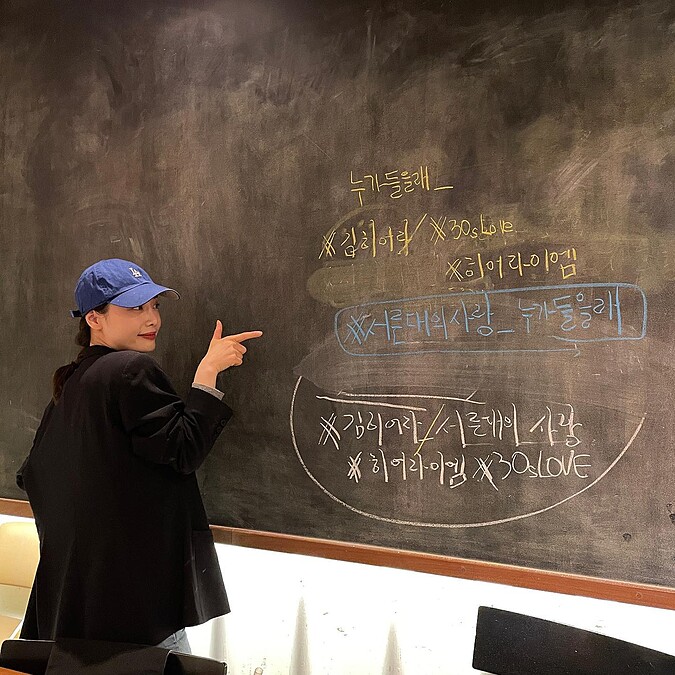 누가들을래_
#김히어라/ #30sLove
#히어라이엠
#서른대의사랑_누가들을래
#김히어라/서른대의_사랑
#히어라이엠 #30sLOVE
LA